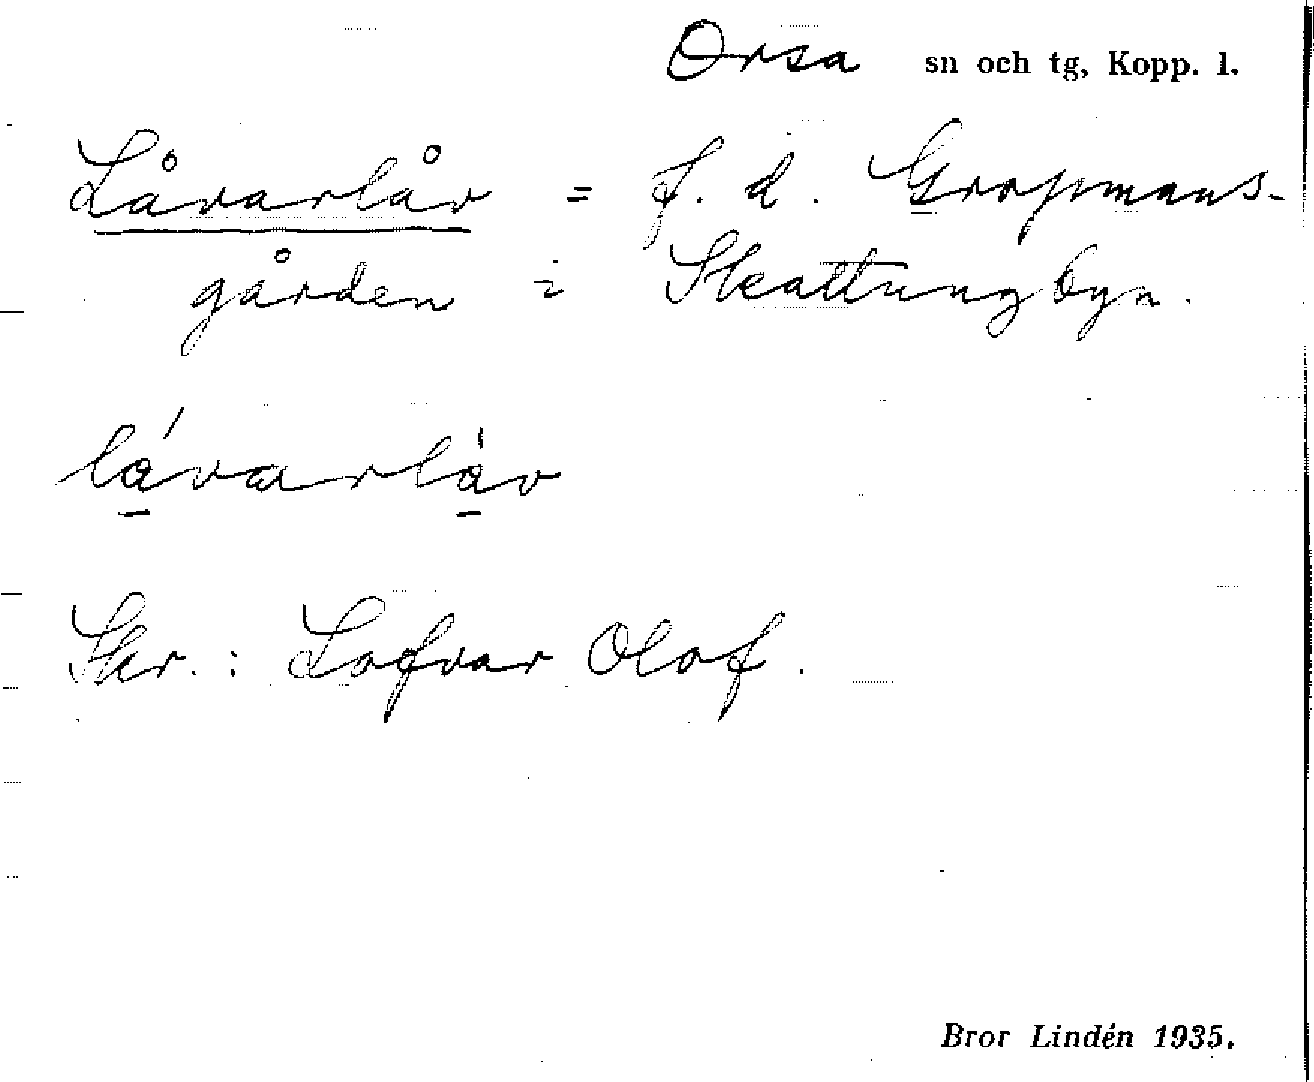 Orsa sn och tg, Kopp. l.
Låvarlåv = f. d. Gropmans-
gården i Skattungbyn.
lávarlàv
Skr.: Lofvar Olof.
Bror Lindén 1935.